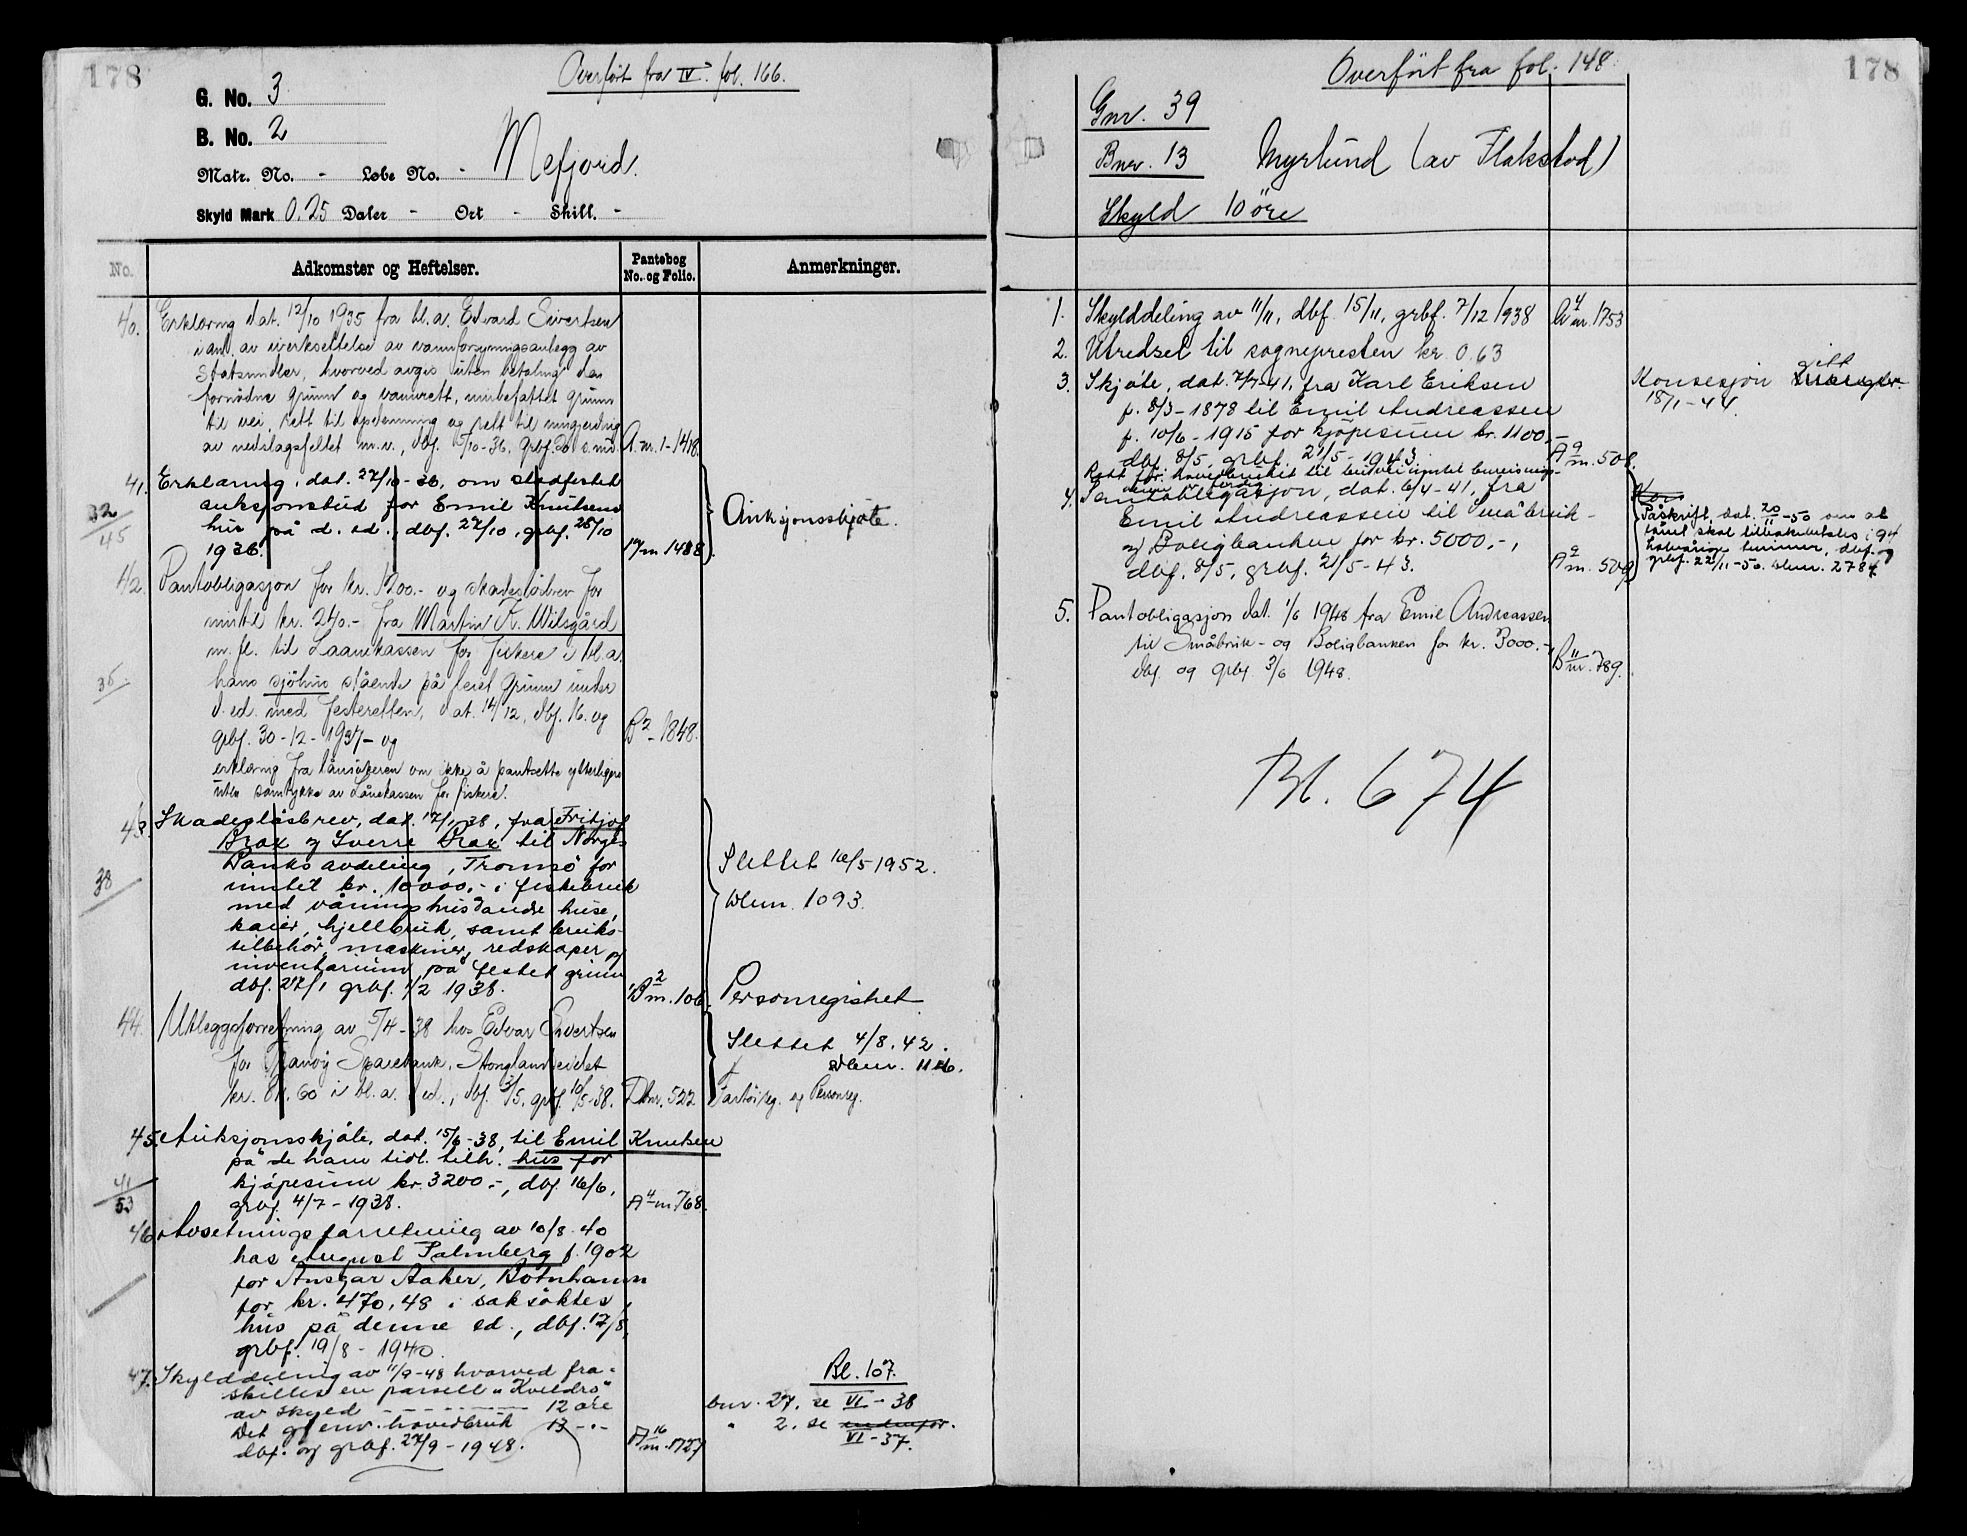 178
Overført fra IV. fol. 166.
G. No. 3
B. No. 2
Matr. No. - Løbe No. -
Mefjord.
Skyld Mark 0.25 Daler - Ort - Skill. -
No.
Adkomster og Heftelser.
Pantebog No. og Folio.
Anmerkninger.
40. Erklæring dat. 12/10 1935 fra bl.a. Edvard Sivertsen
i anl. av iverksettelse av vannforsyningsanlegg av
Statsmidler, hvorved avgis uten betaling den
fornødne grunn og vannrett, innbefattet grunn
til vei, rett til opdemning og rett til inngjerding
av nedslagsfeltet m.v., dbf. 15/10-36, grbf. 20 s. md. A. nr. 1-1418.
41. Erklæring, dat. 27/10-36, om stadfestet
auksjonsbud for Emil Knutsens
hus på d. ed., dbf. 27/10, grbf. 28/10
1936.
1488.
Auksjonsskjøte.
32/45
42. Pantobligasjon for kr. 1200.- og skadesløsbrev for
inntil kr. 240.- fra Martin K. Wilsgård
m. fl. til Laanekassen for fiskere i bl.a.
hans sjøhus stående på leiet grunn under
d. ed. med festeretten, dat. 14/12, dbf. 16. og
grbf. 30-12-1937- og
B2-1848.
erklæring fra lånsøkeren om ikke å pantsette ytterligere
uten samtykke av Lånekassen for fiskere.
36.
43. Skadesløsbrev, dat. 17/1-38, fra Fritjof
Brox og Sverre Brox til Norges
Banks avdeling, Tromsø for
inntil kr. 10000,- i fiskebruk
med våningshus, andre huse,
kaier, hjellbruk, samt bruks-
tilbehør, maskiner, redskaper og
inventarium på festet grunn
dbf. 27/1 grbf. 1/2 1938.
B2 nr. 106.
Slettet 16/5 1952.
Dbnr. 1093.
Personregistret
38
44. Utleggsforretning av 5/4-38 hos Edvar Sivertsen
for Tranøy Sparebank, Stonglandseidet
kr. 81,60 i bl.a. d. ed., dbf. 3/5, grbf. 10/5-38. Dbnr. 522
Slettet 4/8.42.
Dbnr. 1116.
Fartøireg. og Personreg.
45. Auksjonsskjøte, dat. 15/6-38, til Emil Knutsen
på de ham tidl. tilh. hus for
kjøpesum kr. 3200.-, dbf. 16/6,
grbf. 4/7-1938.
A4 nr. 768.
41/53
46. Avsetningsforretning av 10/8-40
hos August Palmberg f. 1902
for Ansgar Aaker, Botnhamn
for kr. 470,48 i saksøktes
hus på denne ed., dbf. 17/8,
grbf. 19/8-1940.
47. Skylddeling av 11/9-48 hvorved fra-
skilles en parsell "Kveldro"
av skyld - - - - - 12 øre
Det gjenv. hovedbruk 13 -"-
dbf. og grbf. 27/9-1948.
A16 nr. 1727
Bl. 107.
bnr. 27, se VI-38
" 2, se endenfor.
VI-37.
178
Overført fra fol. 148
Gnr. 39
Bnr. 13 Myrlund (av Flakstad)
Skyld 10 øre
1. Skylddeling av 11/11, dbf. 15/11, grbf. 7/12 1938 A4 nr. 1753
2. Utredsel til sognepresten kr. 0.63
3. Skjøte, dat. 7/7-41, fra Karl Eriksen
f. 8/3-1878 til Emil Andreassen
f. 10/6-1915 for kjøpesum kr. 1100,-
dbf. 8/5, grbf. 21/5-1943.
A9 nr. 508.
Konsesjon gitt
18/1-44.
Rett for hovedbruket til
4. Pantobligasjon, dat. 6/4-41, fra
Emil Andreassen til Småbruk-
og Boligbanken for kr. 5000.-,
dbf. 8/5, grbf. 21/5-43.
A9 nr. 509
Påskrift, dat. 20/11-50 om at
lånet skal tilbakebetales i 94
halvårige terminer, dbf. og
grbf. 22/11-50. Dbnr. 2787
5. Pantobligasjon dat. 1/6 1948 fra Emil Andreassen
til Småbruk- og Boligbanken for kr. 3000.-,
dbf. og grbf. 3/6 1948.
B11 nr. 789.
Bl. 674